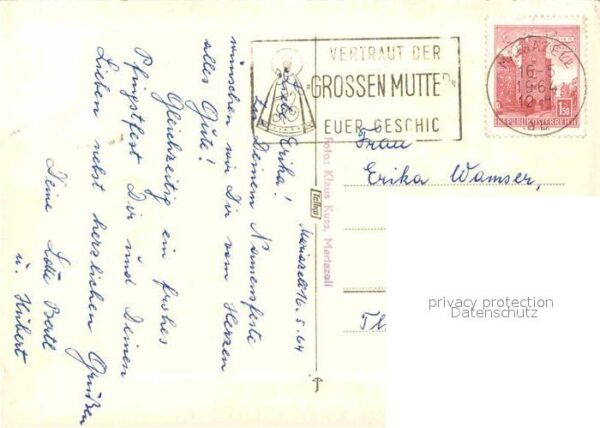 Mariazell 16.5.64
Liebe Erika!
Zu Deinem Namensfeste
wünschen wir Dir vom Herzen
alles Gute!
Gleichzeitig ein frohes
Pfingstfest Dir und Deinen
Lieben nebst herzlichen Grüßen
Deine Lotte
u. Hubert
VERTRAUT DER
GROSSEN MUTTER
EUER GESCHIC
MARIAZELL
16.-5
1964
12
1.50
REPUBLIK ÖSTERREICH
Foto: Klaus Kuss, Mariazell
Frau
Erika Wamser,
privacy protection
Datenschutz